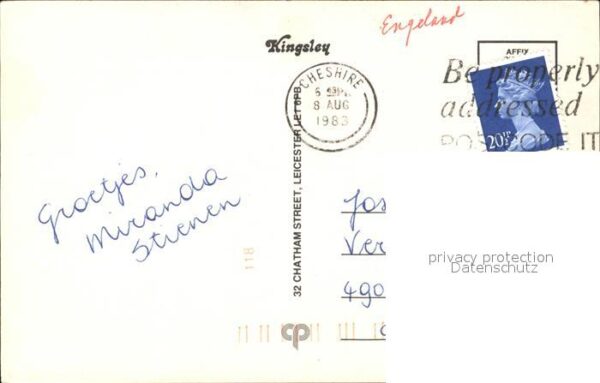 Engeland
Kingsley
AFFIX
CHESHIRE
8 AUG
1983
Be properly
addressed
POSTCODE IT
20½P
Groetjes,
Miranda
Stienen
32 CHATHAM STREET, LEICESTER LE1 6PB
Jos
Ver
490
118
cp
privacy protection
Datenschutz